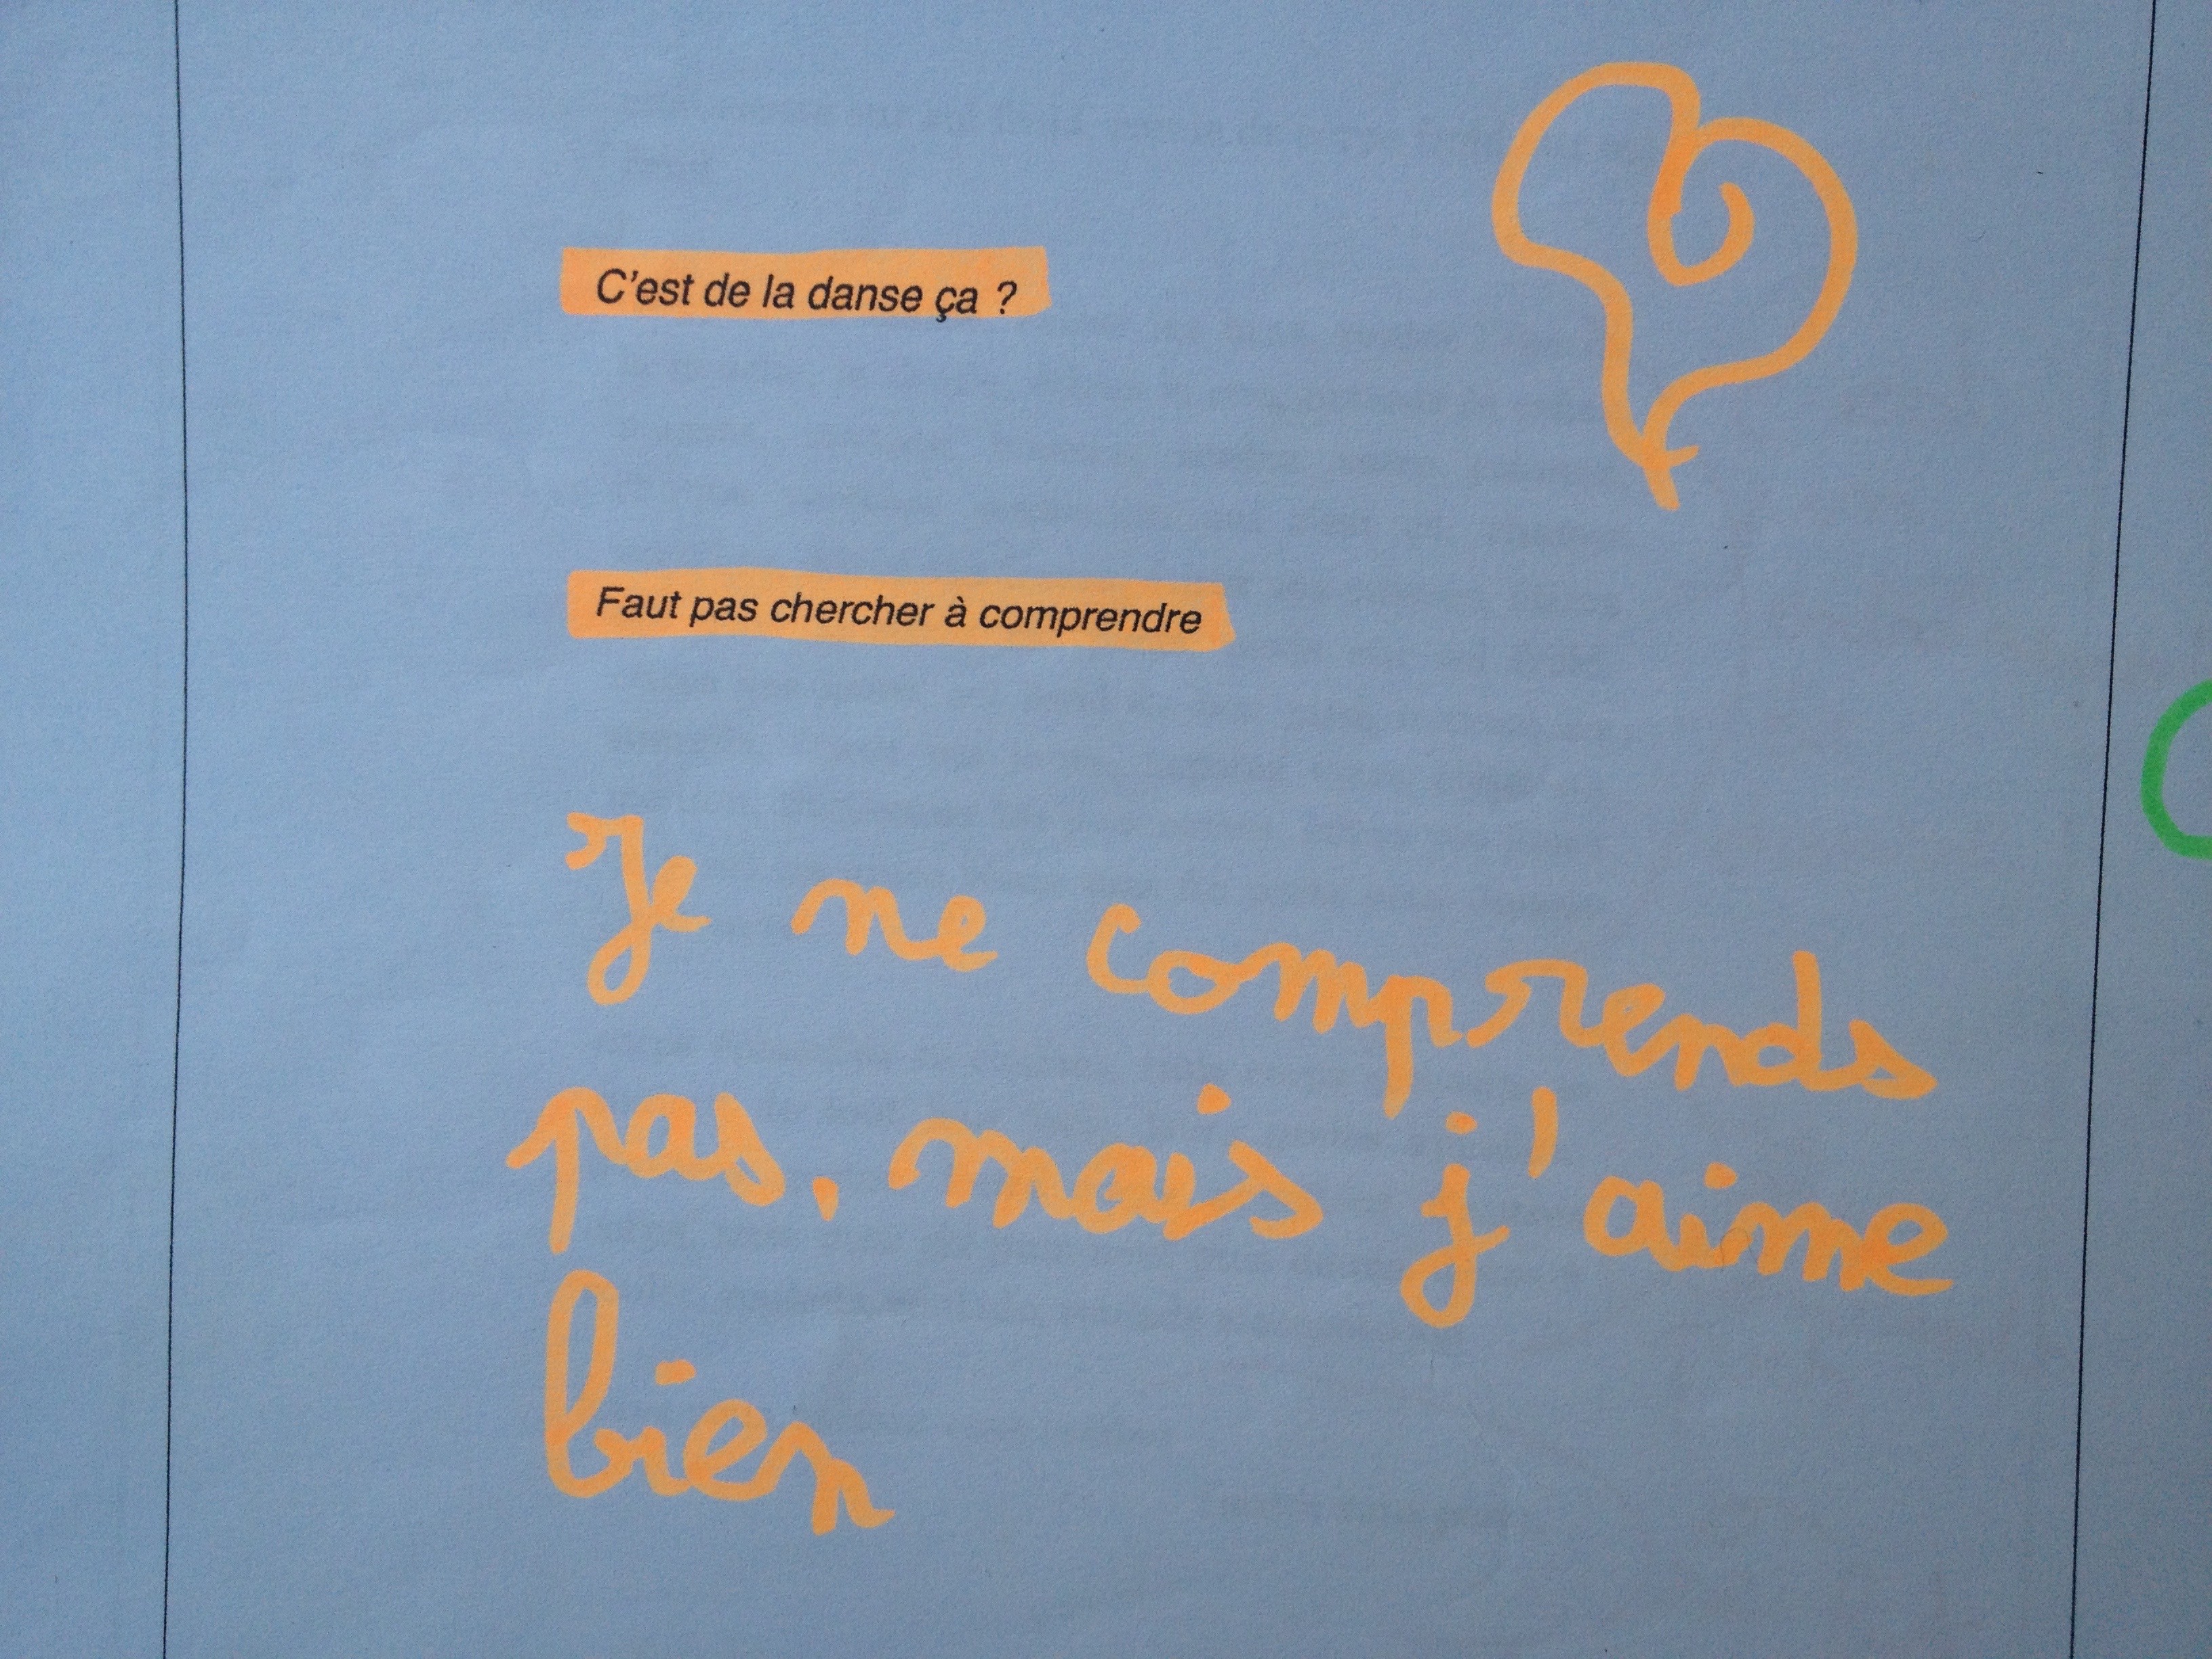 C'est de la danse ça ?
Faut pas chercher à comprendre
Je ne comprends
pas, mais j'aime
bien